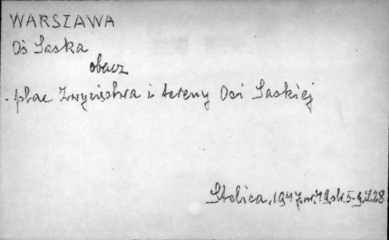 WARSZAWA
Oś Saska
obacz
plac Zwycięstwa i tereny Osi Saskiej
Stolica, 1947, nr. 19, str. 5-9, il. 28